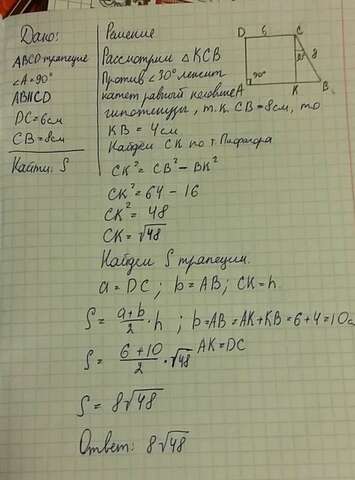 Дано:
ABCD трапеция
∠A=90°
AB||CD
DC=6см
CB=8см
Найти: S
Решение
Рассмотрим △KCB
Против ∠30° лежит
катет равный половине
гипотенузы, т.к. CB=8см, то
KB = 4см
Найдём CK по т. Пифагора
CK² = CB² − BK²
CK² = 64 − 16
CK² = 48
CK = √48
Найдём S трапеции.
a = DC; b = AB; CK = h.
S = (a+b)/2 · h ; b=AB=AK+KB=6+4=10см
AK=DC
S = (6+10)/2 · √48
S = 8√48
Ответ: 8√48
D 6 C
8
30°
90°
A K B